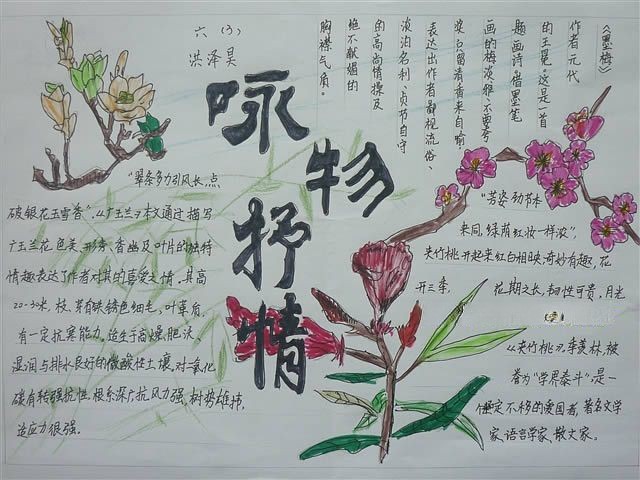 六（3）
洪泽昊
咏物抒情
《墨梅》
作者元代
的王冕。这是一首
题画诗。墨笔
画的梅淡雅,不要夸
奖只留清香来自喻
表达出作者鄙视流俗、
淡泊名利、贞节自守
的高尚情操及
绝不献媚的
胸襟气质。
"翠条多力引风长，点
破银花玉雪香"。《广玉兰》本文通过描写
广玉兰花色美、形秀、香幽及叶片的独特
情趣表达了作者对其的喜爱之情。其高
20-30米,枝、芽有铁锈色细毛,叶革后,
有一定抗寒能力。适生于高燥、肥沃、
湿润与排水良好的微酸性土壤。对二氧化
碳有转强抗性。根系深广抗风力强。树势雄持,
适应力很强。
"芳姿劲节本
来同,绿荫红妆一样浓"。
夹竹桃开起来红白相映,奇妙有趣,花
开三季,
花期之长,韧性可贵,月光
《夹竹桃》季羡林,被
誉为"学界泰斗"是一
位坚定不移的爱国者,著名文学
家、语言学家、散文家。